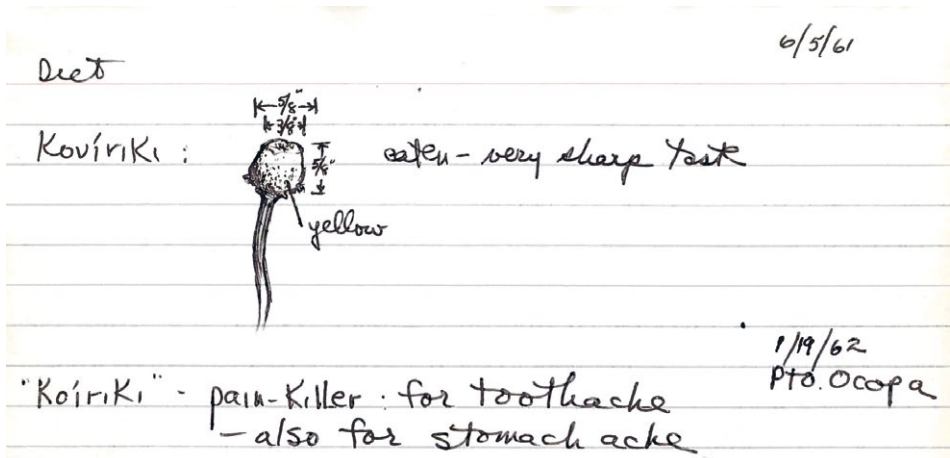 6/5/61
Diet
|←5/8"→|
|←3/8"→|
Kovíriki : eaten - very sharp taste
5/8"
yellow
1/19/62
Pto. Ocopa
"Koíriki" - pain-killer : for toothache
- also for stomach ache